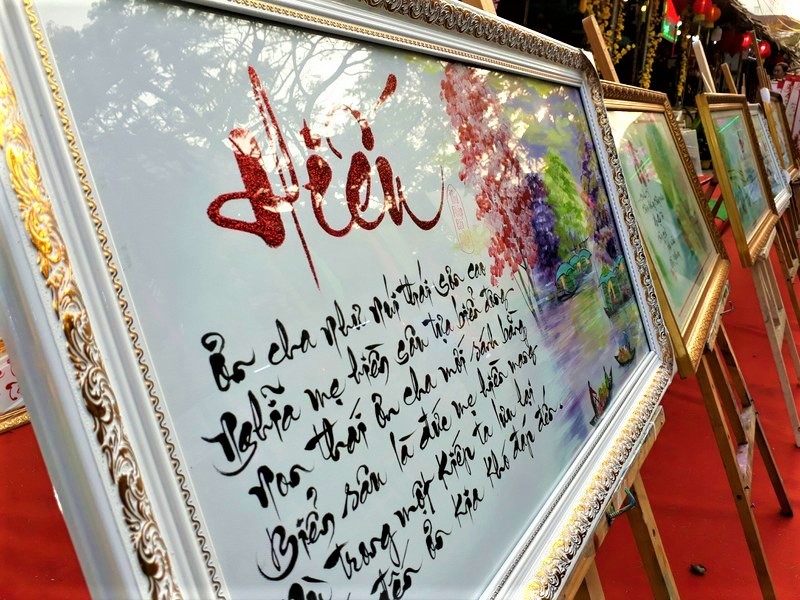 Hiếu
Ơn cha như núi thái sơn cao
Nghĩa mẹ hiền sâu tựa biển đông
Non thái ơn cha mới sánh bằng
Biển sâu là đức mẹ hiền mang
Dù trong một kiếp ta lại
đền ơn kia khó đáp đền.